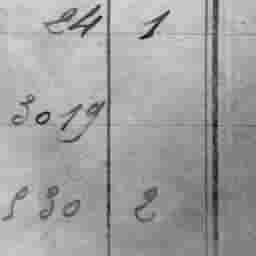 24 1
3019
530 2